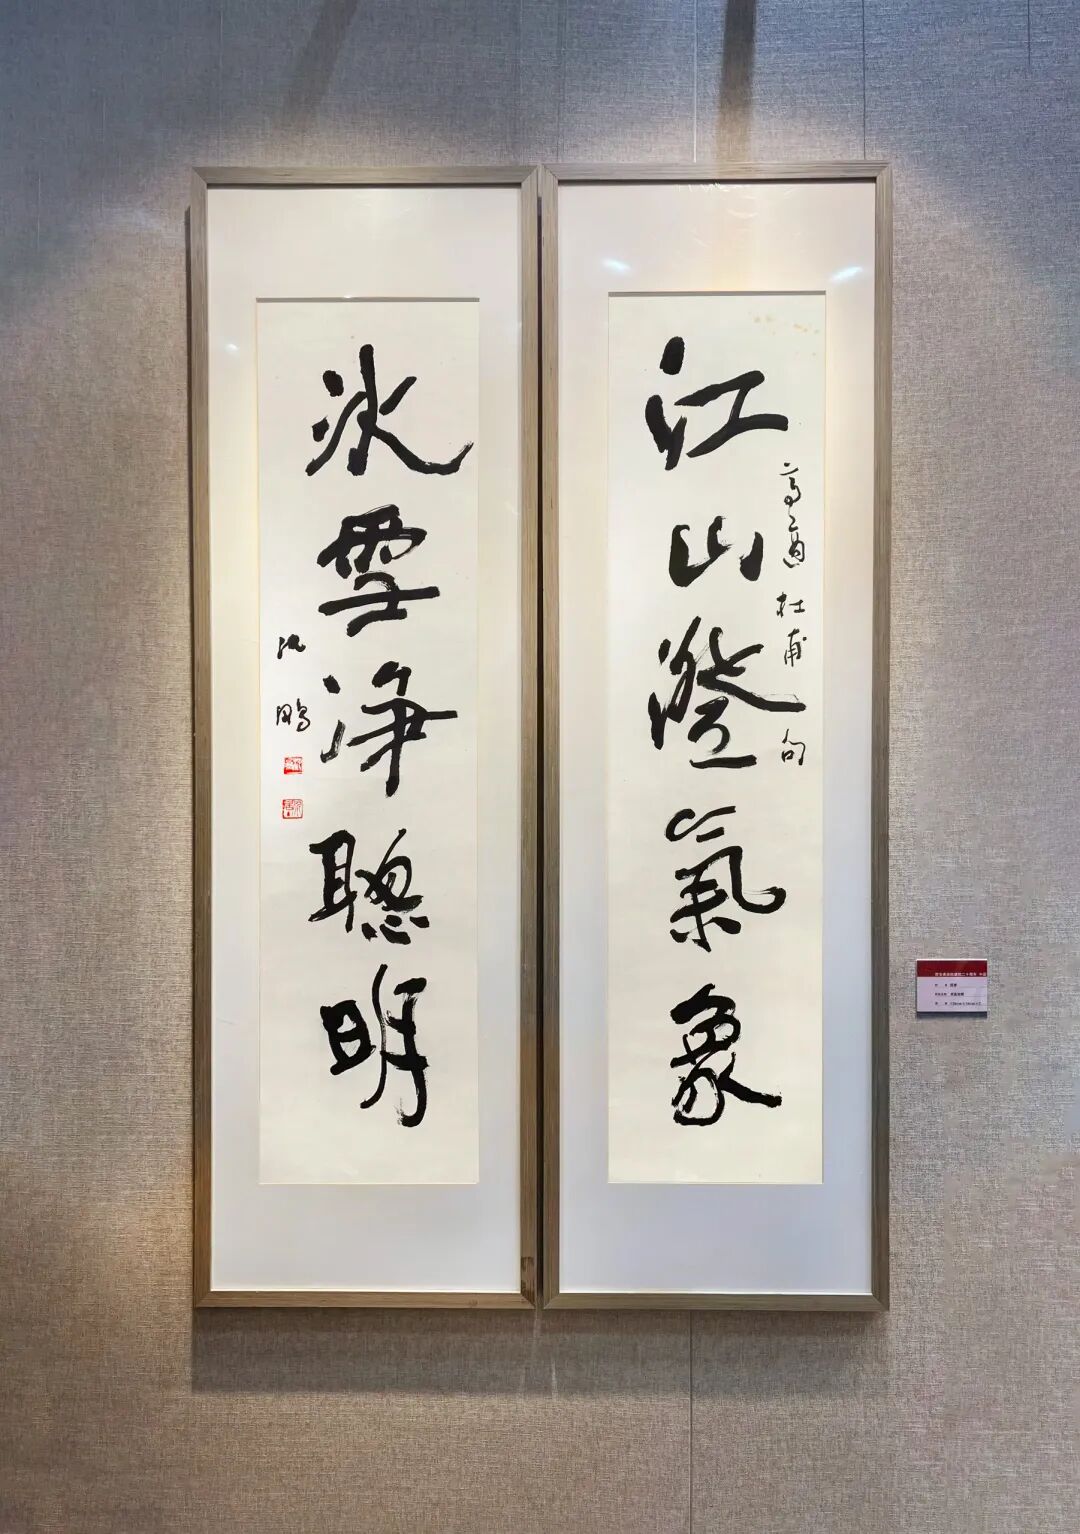 江山澄氣象
高適杜甫句
冰雪淨聰明
沈鵬